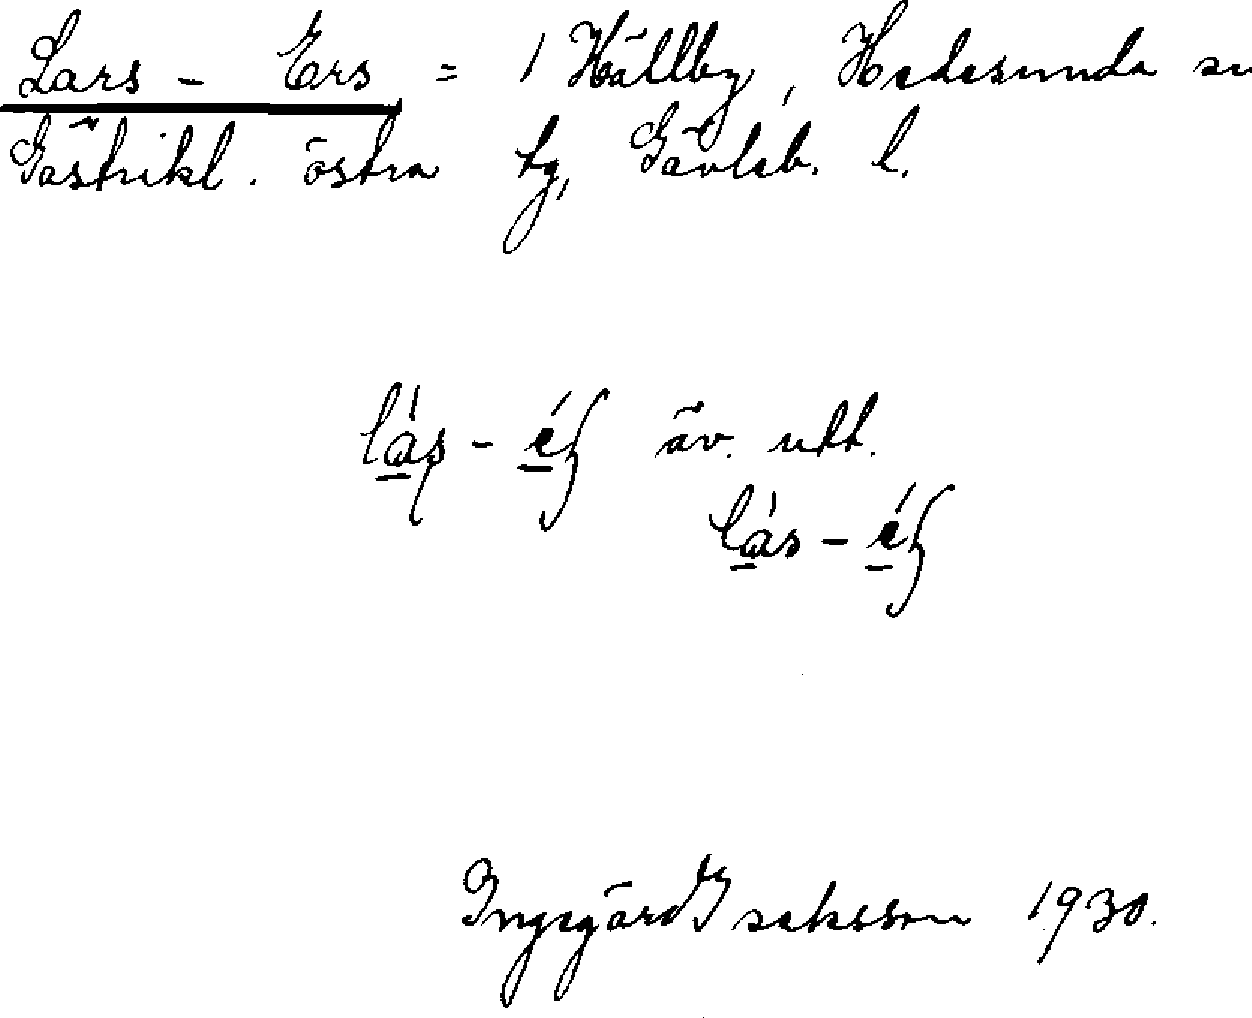 Lars - Ers = 1 Hällby, Hedesunda sn
Gästrikl. östra tg, Gävleb. l.
lás - éʂ äv. utt.
lás - éʂ
Ingegärd Isaksson 1930.